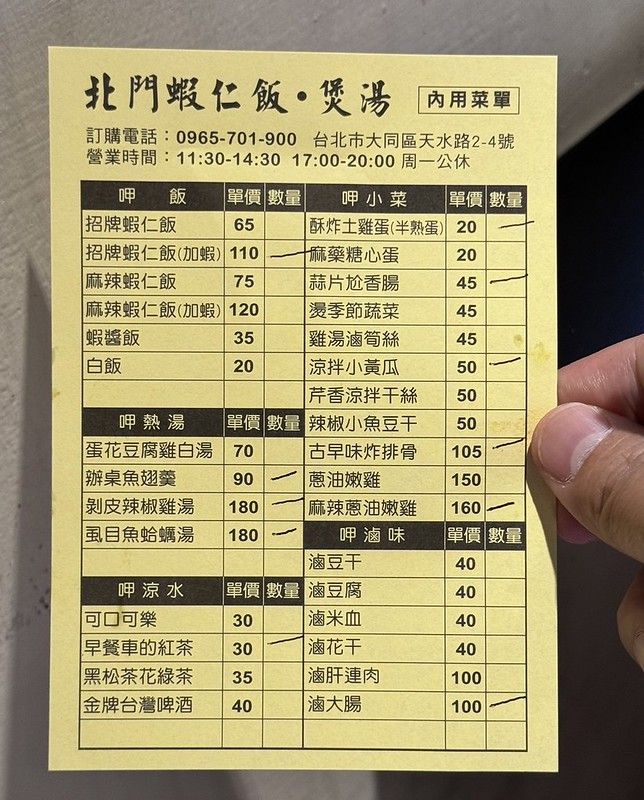 北門蝦仁飯•煲湯 內用菜單
訂購電話：0965-701-900 台北市大同區天水路2-4號
營業時間：11:30-14:30 17:00-20:00 周一公休
呷飯 單價 數量
招牌蝦仁飯 65
招牌蝦仁飯(加蝦) 110
麻辣蝦仁飯 75
麻辣蝦仁飯(加蝦) 120
蝦醬飯 35
白飯 20
呷熱湯 單價 數量
蛋花豆腐雞白湯 70
辦桌魚翅羹 90
剝皮辣椒雞湯 180
虱目魚蛤蠣湯 180
呷涼水 單價 數量
可口可樂 30
早餐車的紅茶 30
黑松茶花綠茶 35
金牌台灣啤酒 40
呷小菜 單價 數量
酥炸土雞蛋(半熟蛋) 20
麻藥糖心蛋 20
蒜片尬香腸 45
燙季節蔬菜 45
雞湯滷筍絲 45
涼拌小黃瓜 50
芹香涼拌干絲 50
辣椒小魚豆干 50
古早味炸排骨 105
蔥油嫩雞 150
麻辣蔥油嫩雞 160
呷滷味 單價 數量
滷豆干 40
滷豆腐 40
滷米血 40
滷花干 40
滷肝連肉 100
滷大腸 100